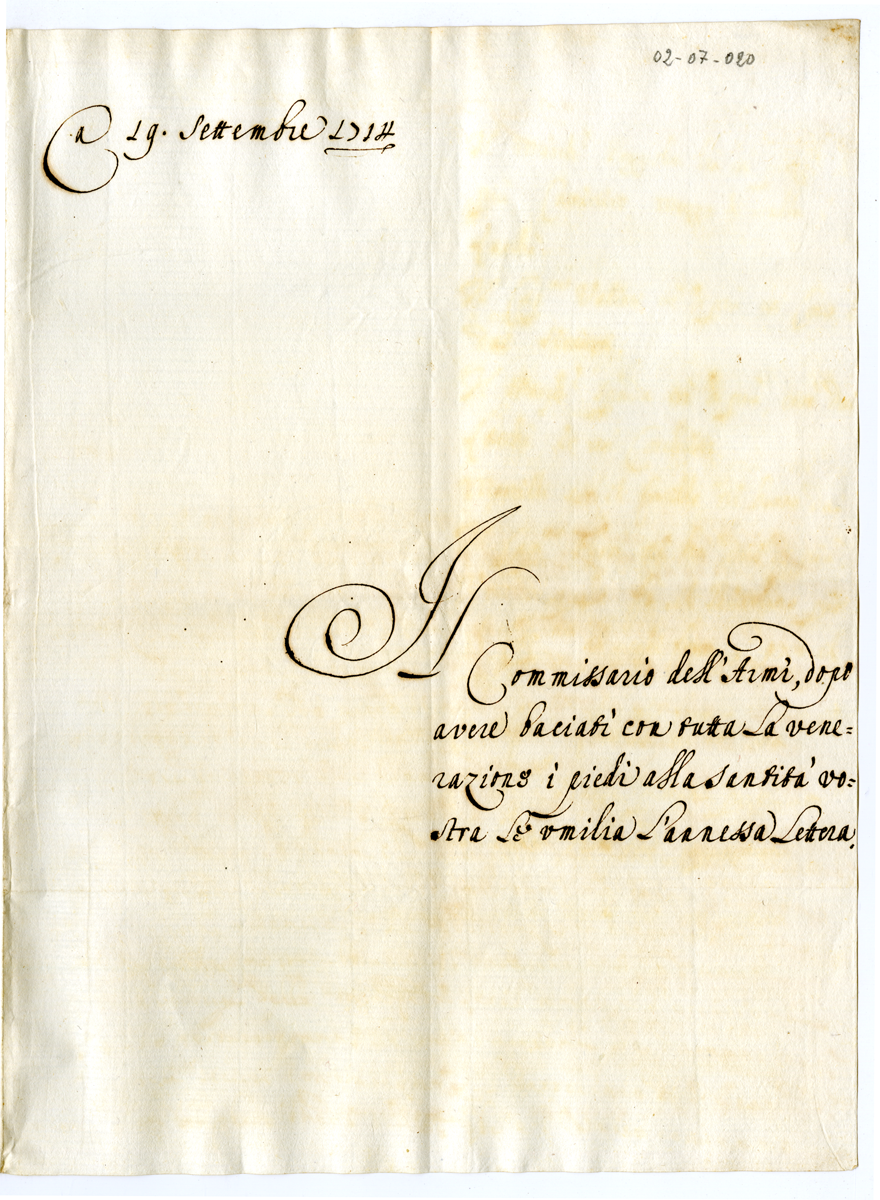 02-07-020
A 19. Settembre 1714
Il
Commissario dell'Armi, dopo
avere baciati con tutta La vene=
razione i piedi alla Santità vo=
stra Le umilia L'annessa Lettera.